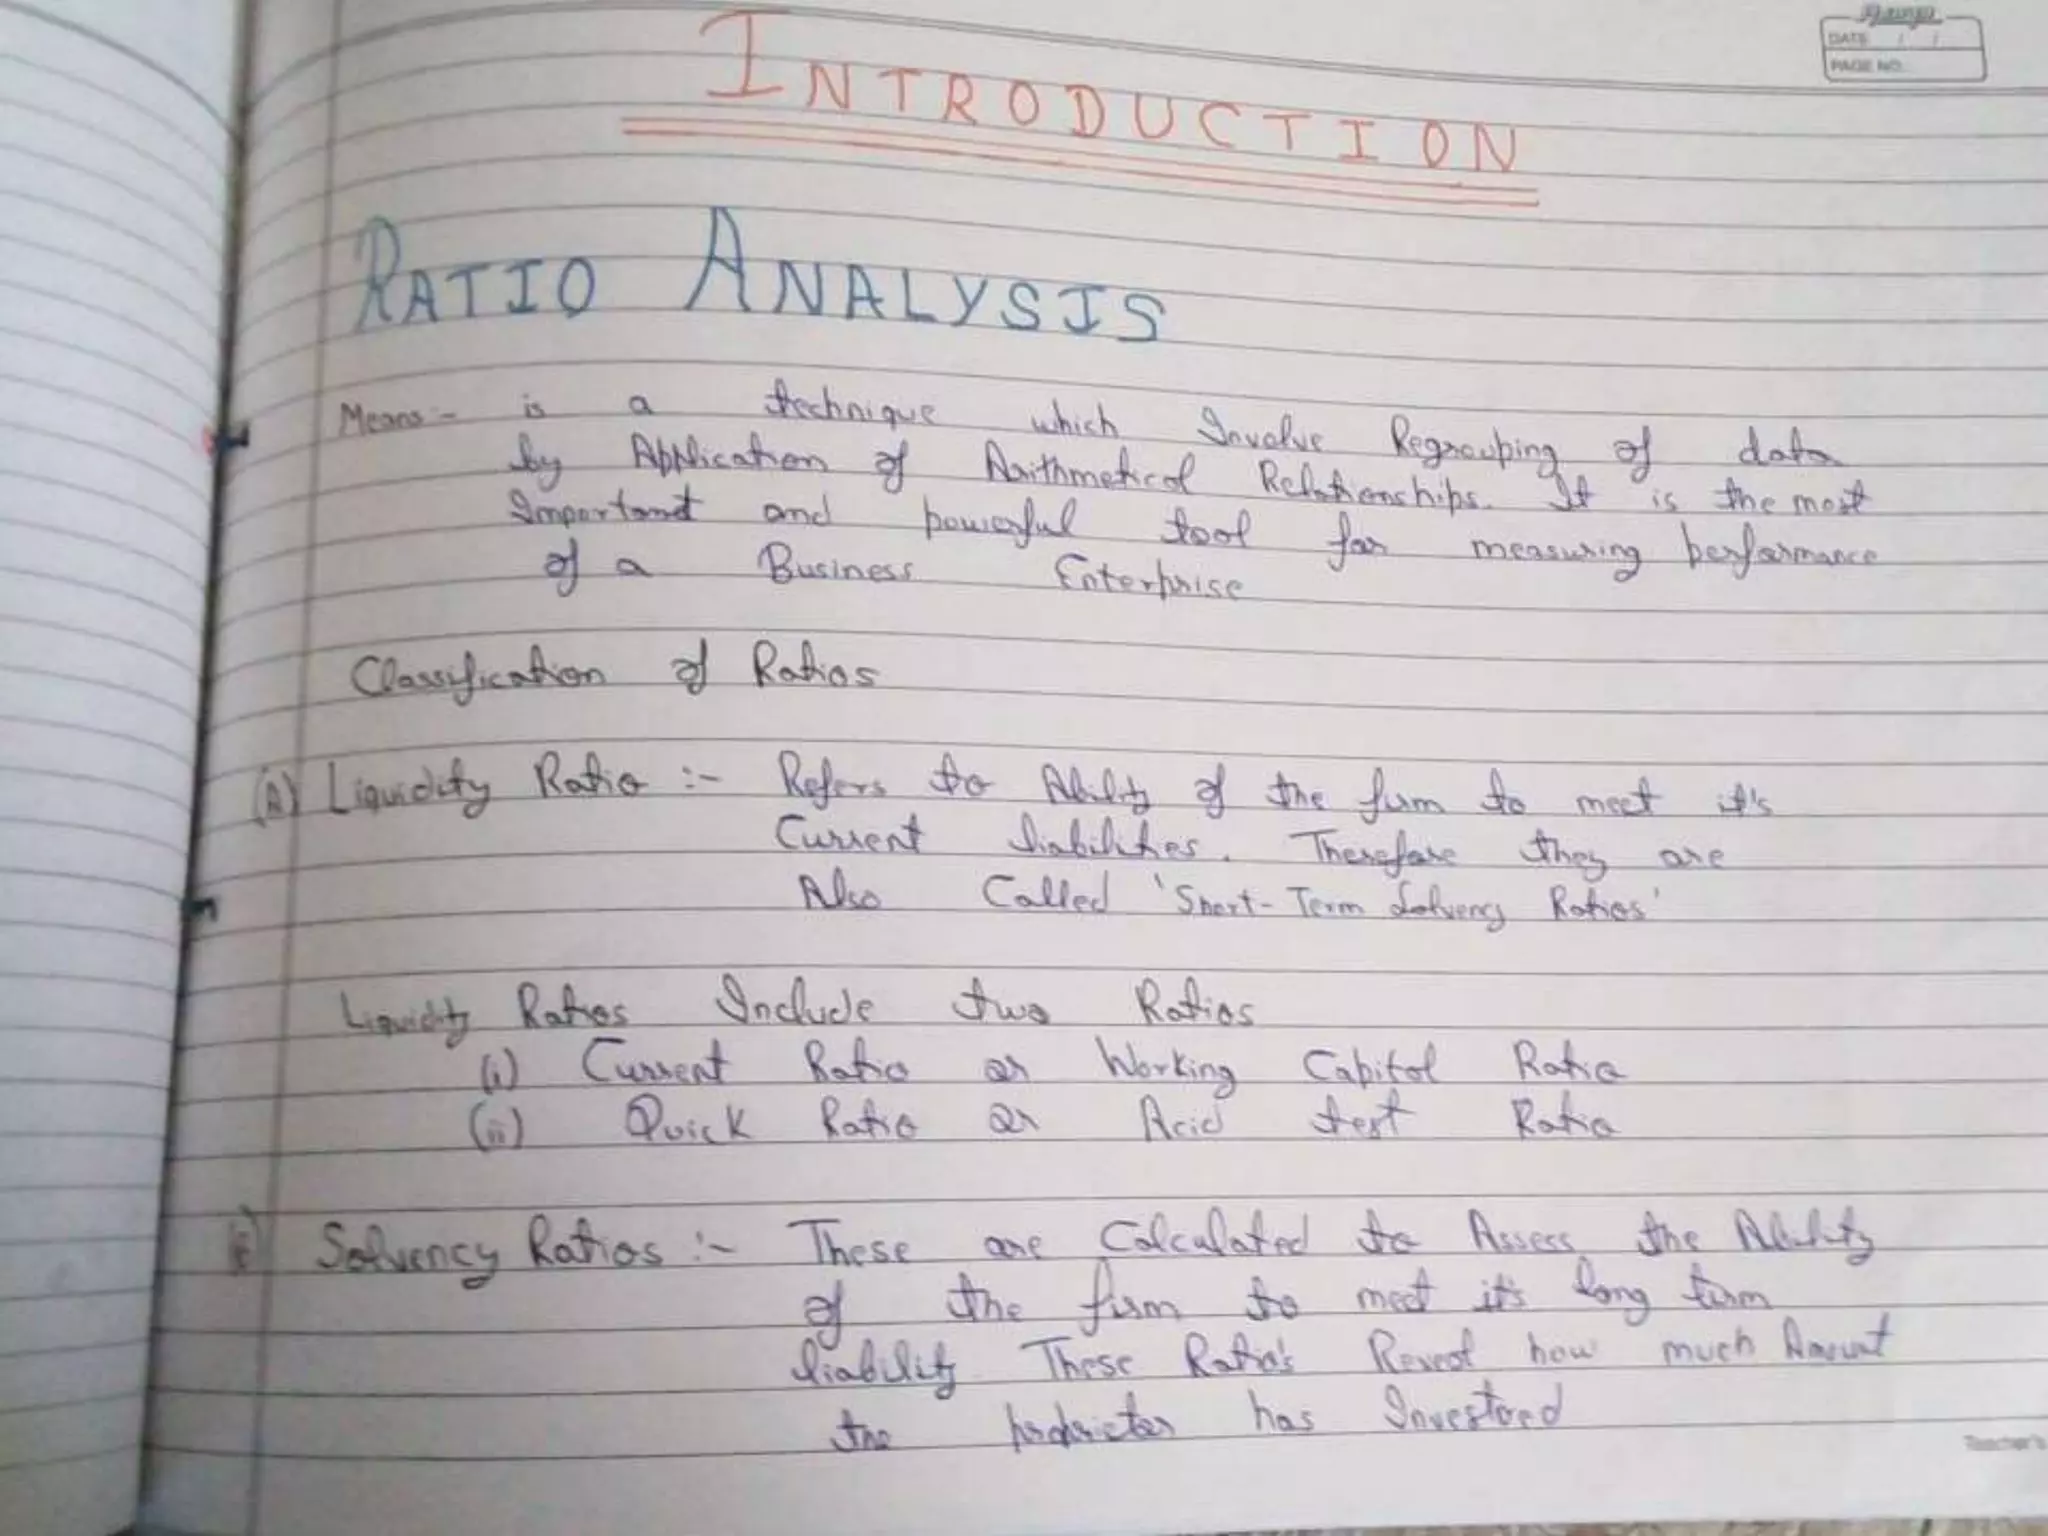 DATE / /
PAGE NO.
INTRODUCTION
RATIO ANALYSIS
Means :- is a technique which Involve Regrouping of data
by Application of Arithmetical Relationships. It is the most
Important and powerful tool for measuring performance
of a Business Enterprise
Classification of Ratios
(A) Liquidity Ratio :- Refers to Ability of the firm to meet it's
Current liabilities. Therefore they are
Also Called 'Short-Term Solvency Ratios'
Liquidity Ratios Include two Ratios
(i) Current Ratio or Working Capital Ratio
(ii) Quick Ratio or Acid test Ratio
Solvency Ratios :- These are Calculated to Assess the Ability
of the firm to meet it's long term
liability These Ratio's Reveal how much Amount
the proprietor has Investored
Teacher's